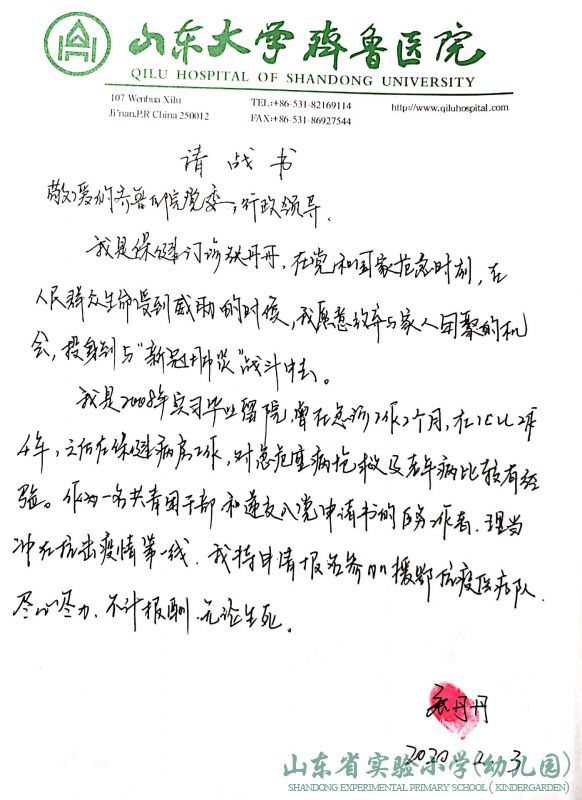 山东大学齊鲁医院
QILU HOSPITAL OF SHANDONG UNIVERSITY
107 Wenhua Xilu TEL:+86-531-82169114 http://www.qiluhospital.com
Ji'nan,P.R China 250012 FAX:+86-531-86927544
请战书
敬爱的齐鲁医院党委，行政领导，
我是保健门诊张丹丹，在党和国家危急时刻，在
人民群众生命受到威胁的时候，我愿意放弃与家人团聚的机
会，投身到与“新冠肺炎”战斗中去。
我是2008年实习毕业留院，曾在急诊工作2个月，在ICU工作
4年，之后在保健病房工作，对急危重病抢救及老年病比较有经
验。作为一名共青团干部和递交入党申请书的医务工作者，理当
冲在抗击疫情第一线，我特申请报名参加援鄂抗疫医疗队，
尽心尽力、不计报酬、无论生死。
张丹丹
2020 2. 3
山东省实验小学(幼儿园)
SHANDONG EXPERIMENTAL PRIMARY SCHOOL ( KINDERGARDEN)